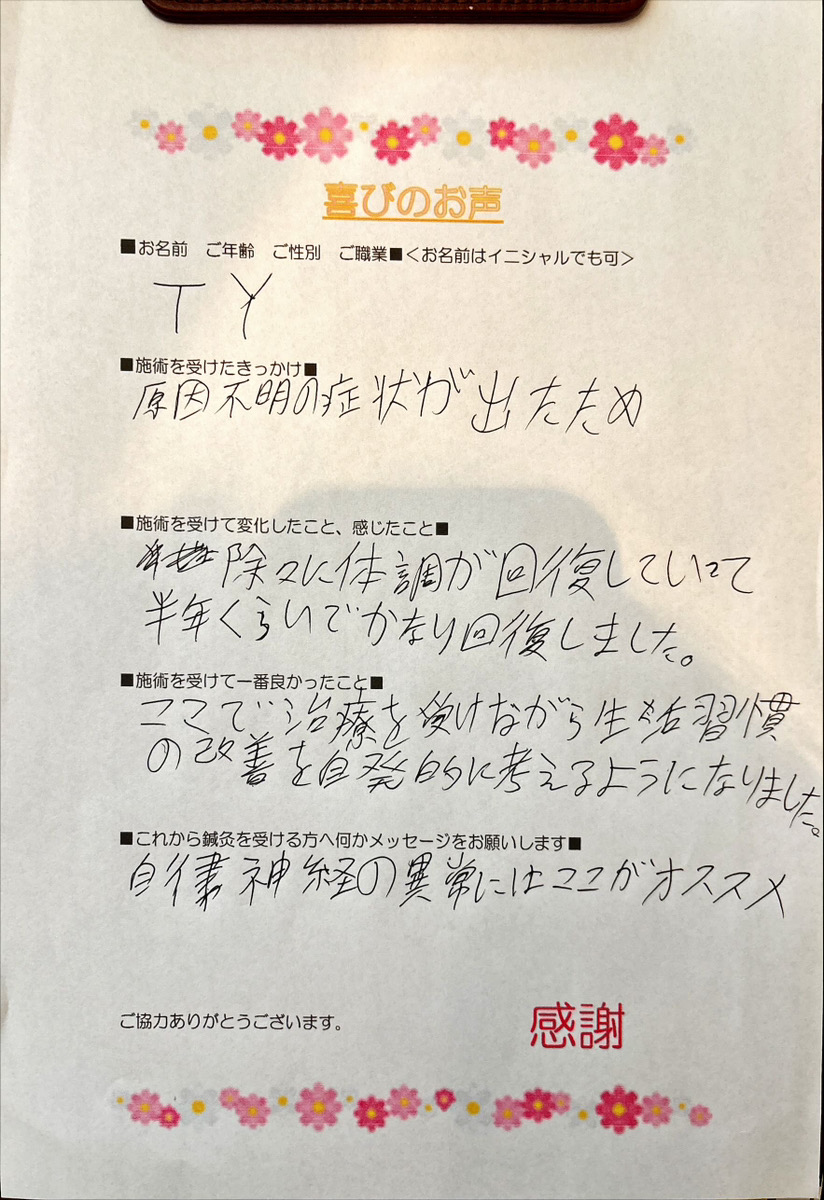 喜びのお声
■お名前 ご年齢 ご性別 ご職業■<お名前はイニシャルでも可>
T Y
■施術を受けたきっかけ■
原因不明の症状が出たため
■施術を受けて変化したこと、感じたこと■
除々に体調が回復していって
半年くらいでかなり回復しました。
■施術を受けて一番良かったこと■
ここで治療を受けながら生活習慣
の改善を自発的に考えるようになりました。
■これから鍼灸を受ける方へ何かメッセージをお願いします■
自律神経の異常にはココがオススメ
ご協力ありがとうございます。
感謝